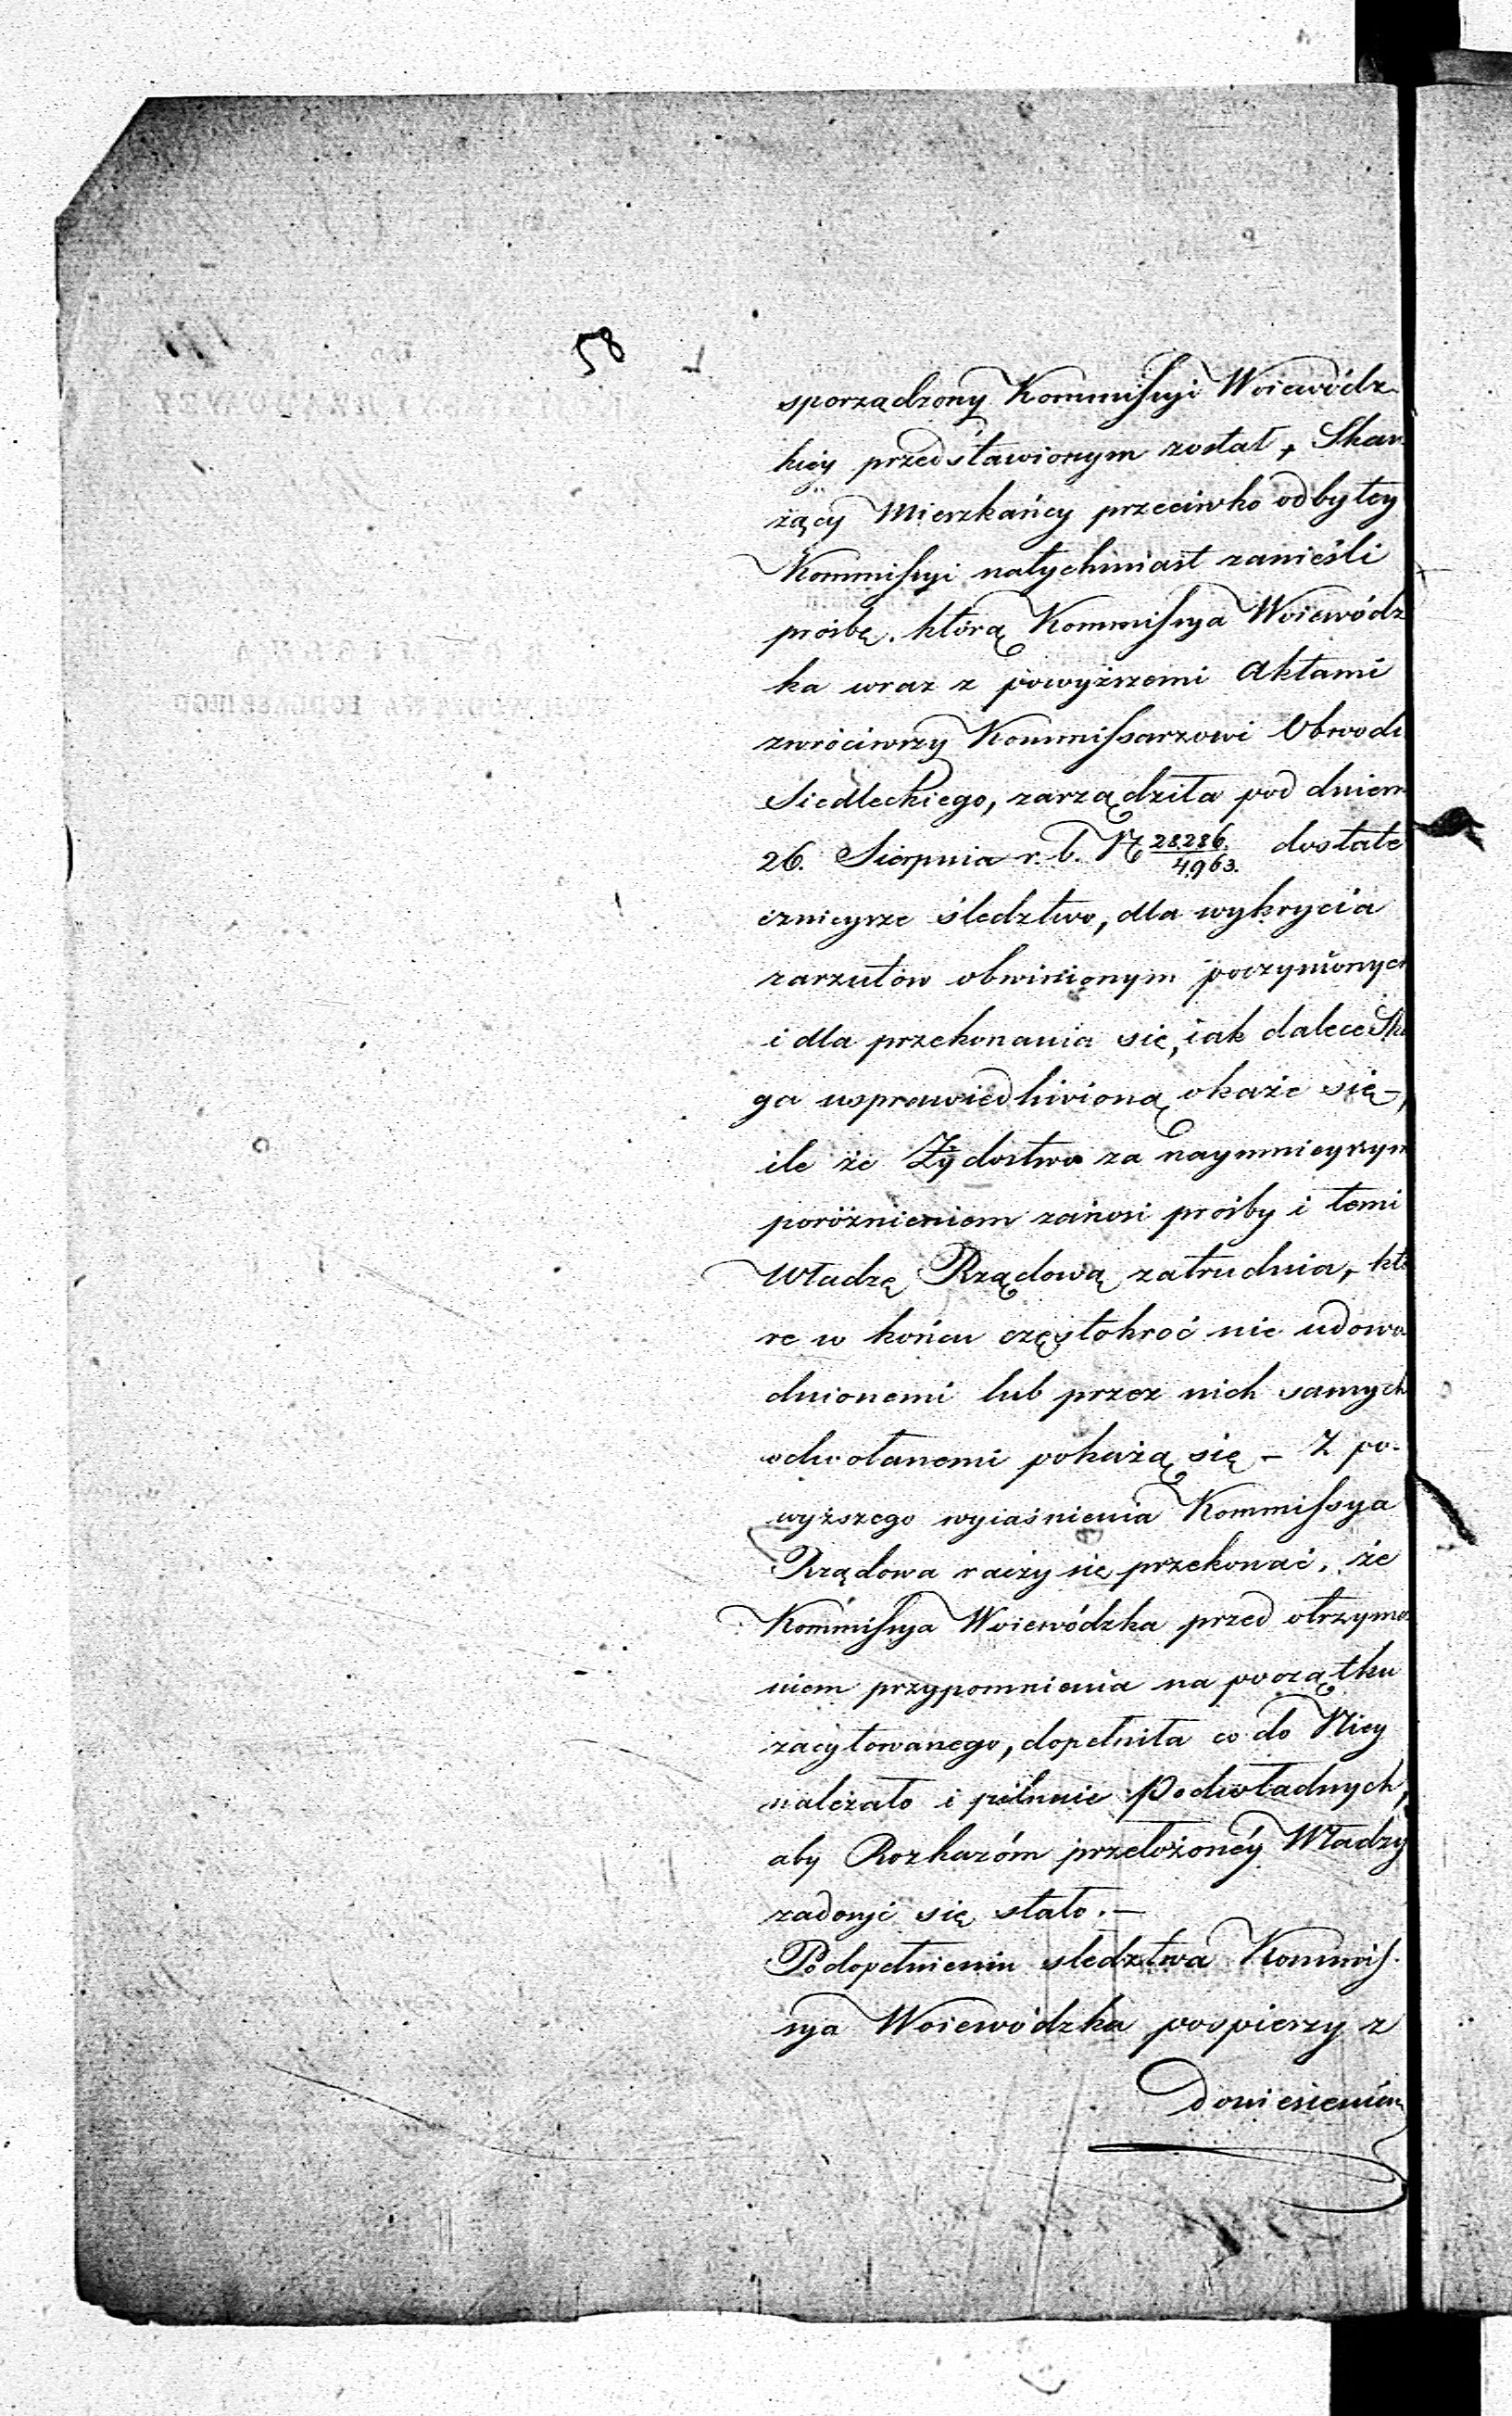 58
sporządzony Kommissyi Woiewódz-
kiey przedstawionym został, Skar
żący Mieszkańcy przeciwko odbytey
Kommissyi natychmiast zanieśli
prośbę, którą Kommissya Woiewódz
ka wraz z powyższemi Aktami
zwróciwszy Kommissarzowi Obwodu
Siedleckiego, zarządziła pod dniem
26. Sierpnia r. b. N 28286./4,963. dostate
cznieysze śledztwo, dla wykrycia
zarzutów obwinionym poczynionych
i dla przekonania się, iak dalece Ska
ga usprawiedliwioną okaże się -,
ile że Żydostwo za naymnieyszym
poróżnieniem zanosi prośby i temi
Władzę Rządową zatrudnia, któ
re w końcu częstokroć nie udowo
dnionemi lub przez nich samych
odwołanemi pokażą się - Z po-
wyższego wyiaśnienia Kommissya
Rządowa raczy się przekonać, że
Kommissya Woiewódzka przed otrzyma
niem przypomnienia na początku
zacytowanego, dopełniła co do Niey
należało i pilnuie Podwładnych,
aby Rozkazóm przełożonéy Władzy
zadosyć się stało. -
Po dopełnieniu sledztwa Kommis-
sya Woiewódzka pospieszy z
Doniesieniem